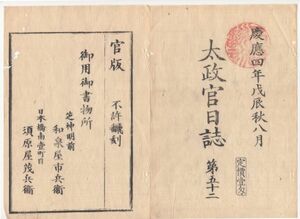 慶應四年戊辰秋八月
太政官日誌 第五十二
定價壹匁
官版 不許飜刻
御用御書物所
芝神明前
和泉屋市兵衞
日本橋南壹町目
須原屋茂兵衞